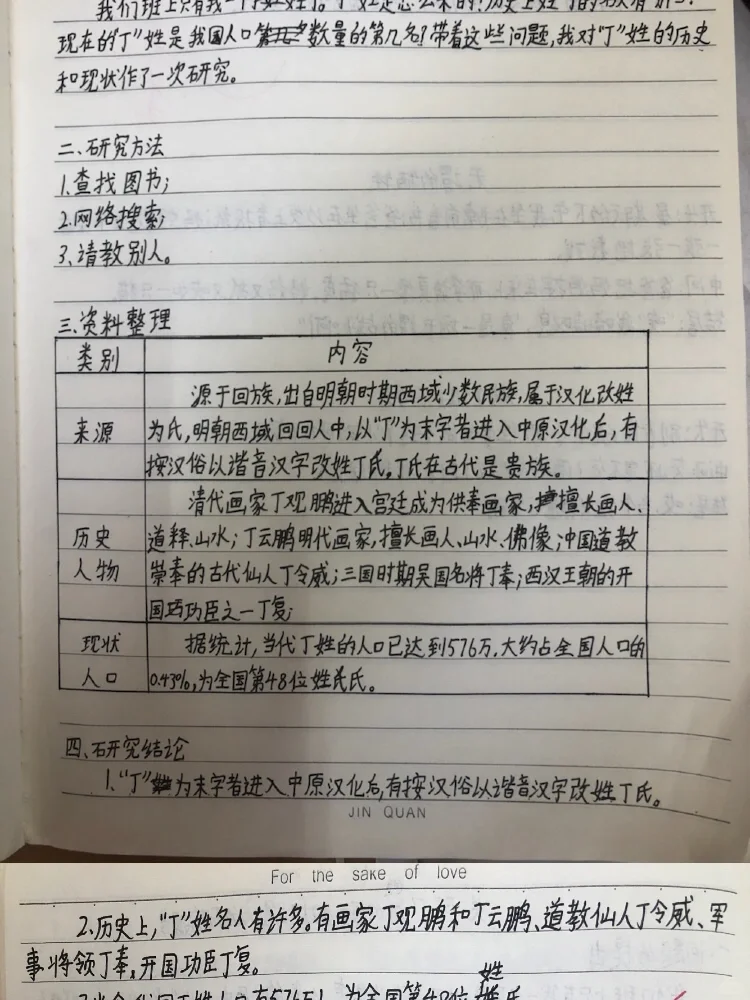 我们班上只有我一个姓丁。"丁"姓是怎么来的？历史上姓丁的名人有
现在的丁"姓是我国人口数量的第几名？带着这些问题，我对"丁"姓的历史
和现状作了一次研究。
二、研究方法
1.查找图书；
2.网络搜索；
3、请教别人。
三、资料整理
类别 内容
来源 源于回族，出自明朝时期西域少数民族，属于汉化改姓
为氏，明朝西域回回人中，以"丁"为末字者进入中原汉化后，有
按汉俗以谐音汉字改姓丁氏。丁氏在古代是贵族。
历史人物 清代画家丁观鹏进入宫廷成为供奉画家，擅长画人、
道释、山水；丁云鹏明代画家，擅长画人、山水、佛像；中国道教
崇奉的古代仙人丁令威；三国时期吴国名将丁奉；西汉王朝的开
国功臣之一丁复；
现状人口 据统计，当代丁姓的人口已达到576万，大约占全国人口的
0.43%，为全国第48位姓氏。
四、研究结论
1."丁"为末字者进入中原汉化后，有按汉俗以谐音汉字改姓丁氏。
JIN QUAN
For the sake of love
2.历史上，"丁"姓名人有许多。有画家丁观鹏和丁云鹏、道教仙人丁令威、军
事将领丁奉，开国功臣丁复。
姓
576万 为全国第48位 氏